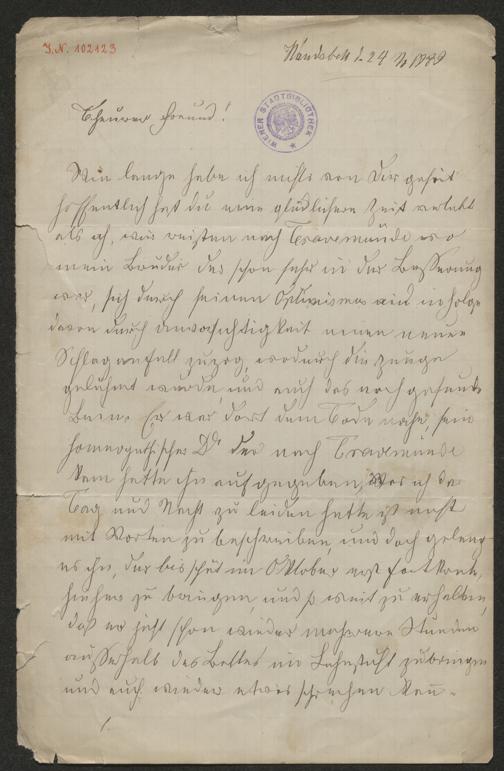 I.N. 102123
Wandsbek d. 24
WIENER STADTBIBLIOTHEK
Theurer Freund!
Wie lange habe ich nichts von Dir gehört
hoffentlich hast du eine glücklichere Zeit verlebt
als ich, wir reisten nach Travemünde wo
mein Bruder der schon sehr in der Besserung
war, sich durch seinen Optimismus und in Folge
davon durch Unvorsichtigkeit einen neuen
Schlaganfall zuzog, wodurch die Zunge
gelähmt wurde, und auch das noch gesunde
Bein. Er war dort dem Tode nahe, sein
homeopathischer Dr der nach Travemünde
kam hatte ihn aufgegeben, Was ich da
Tag und Nacht zu leiden hatte ist nicht
mit Worten zu beschreiben, und doch gelang
es ihn, der bis spät im Oktober erst fort konnte,
hieher zu bringen, und so weit zu erhalten,
daß er jetzt schon wieder mehrere Stunden
ausserhalb des Bettes im Lehnstuhl zubringen
und auch wieder etwas sprechen kann.